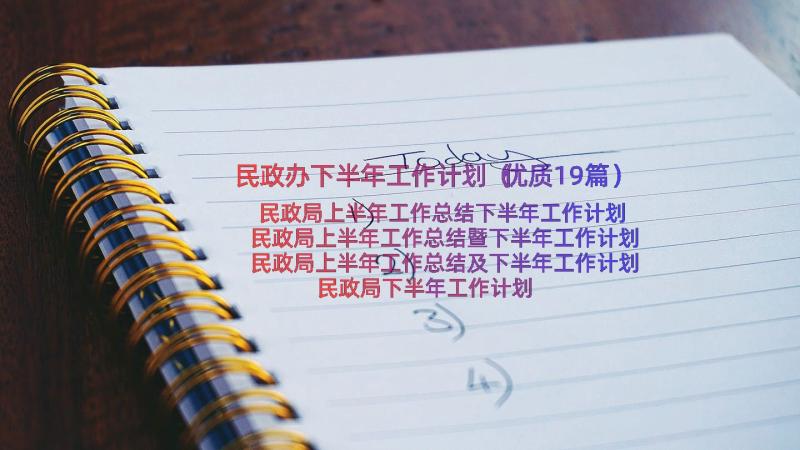 Today
民政办下半年工作计划（优质19篇）
民政局上半年工作总结下半年工作计划
1)
民政局上半年工作总结暨下半年工作计划
民政局上半年工作总结及下半年工作计划
2)
民政局下半年工作计划
3)
4)